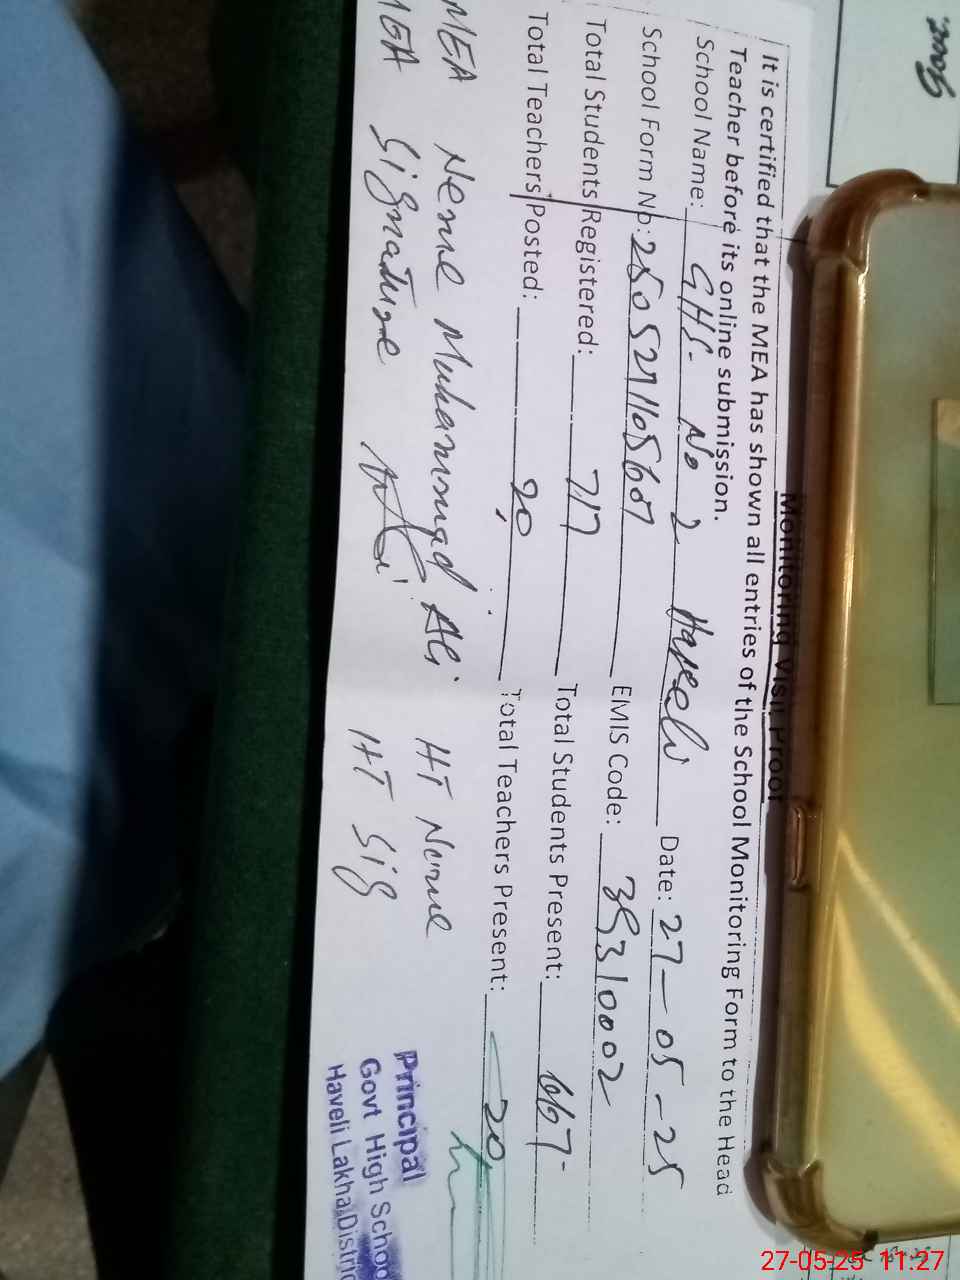 Monitoring Visit Proof
It is certified that the MEA has shown all entries of the School Monitoring Form to the Head
Teacher before its online submission.
School Name: GHS. No 2 Haveli Date: 27-05-25
School Form No: 2505271105607 EMIS Code: 39310002
Total Students Registered: 717 Total Students Present: 667
Total Teachers Posted: 20 Total Teachers Present: 20
MEA Neme Muhammad Ali HT Neme
MEA Signature HT Sig
Principal
Govt High Schoo
Haveli Lakha Distric
27-05-25 11:27